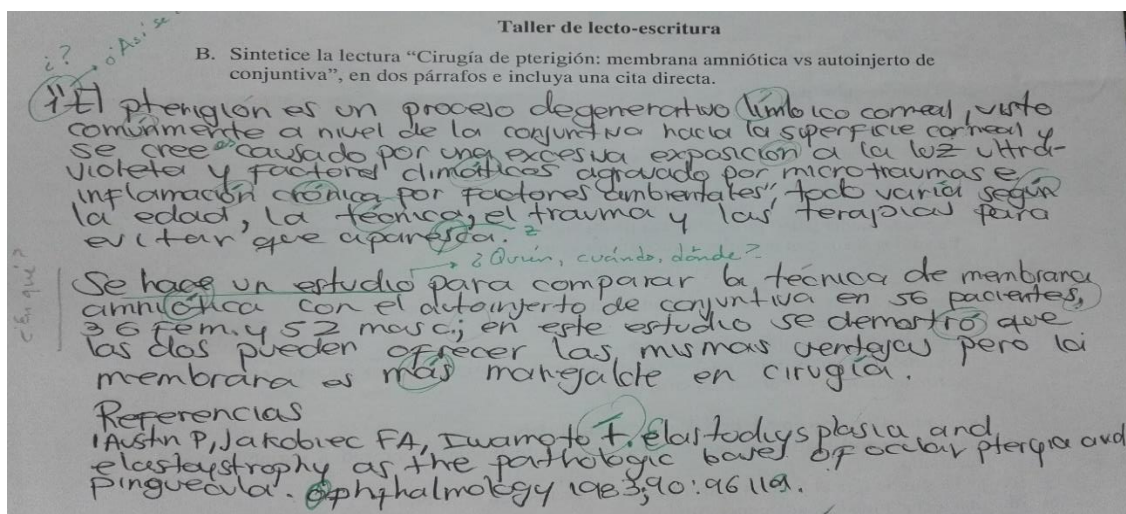 Taller de lecto-escritura
¿? ¡Así se
B. Sintetice la lectura “Cirugía de pterigión: membrana amniótica vs autoinjerto de
conjuntiva”, en dos párrafos e incluya una cita directa.
1"El pterigión es un proceso degenerativo límbico corneal, visto
comúnmente a nivel de la conjuntiva hacia la superficie corneal y
se cree es causado por una excesiva exposición a la luz ultra-
violeta y factores climáticos agravado por microtraumas e
inflamación crónica por factores ambientales", todo varía según
la edad, la técnica, el trauma y las terapias para
evitar que aparesca. z
¿Quién, cuándo, dónde?
¿En qué?
Se hace un estudio para comparar la técnica de membrana
amniótica con el autoinjerto de conjuntiva en 56 pacientes,
36 fem. y 52 masc.; en este estudio se demostró que
las dos pueden ofrecer las mismas ventajas pero la
membrana es más manejable en cirugía.
Referencias
1 Austin P, Jakobiec FA, Iwamoto T. elastodysplasia and
elastaystrophy as the pathologic bases of ocular pterygia and
pinguecula. Ophthalmology 1983;90:96 119.